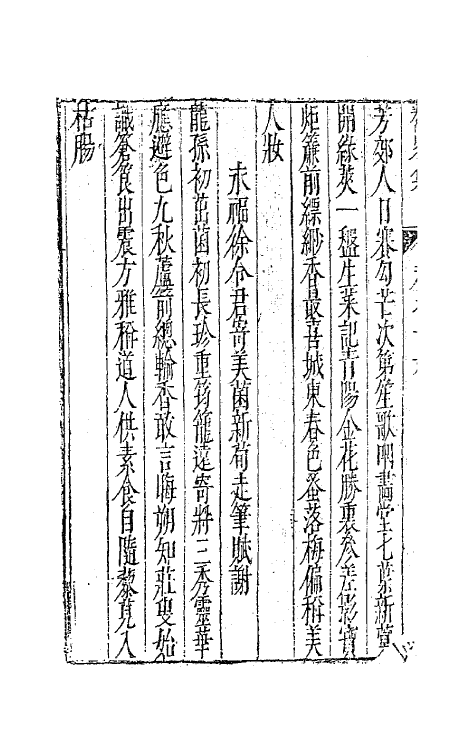 芳郊人日賽勾芒次第笙歌開畫堂七葉新蓂
開綠莢一盤生菜記青陽金花勝裏參差影寶
炬簾前縹緲香最喜城東春色蚤落梅偏稱美
人妝
永福徐令君寄美菌新荀走筆賦謝
龍孫初茁菌初長珍重筠籠遠寄將三秀靈華
應避色九秋蘆前總輸香敢言晦朔知莊叟始
識篬筤出震方雅稱道人供素食自隨藜莧入
枯腸